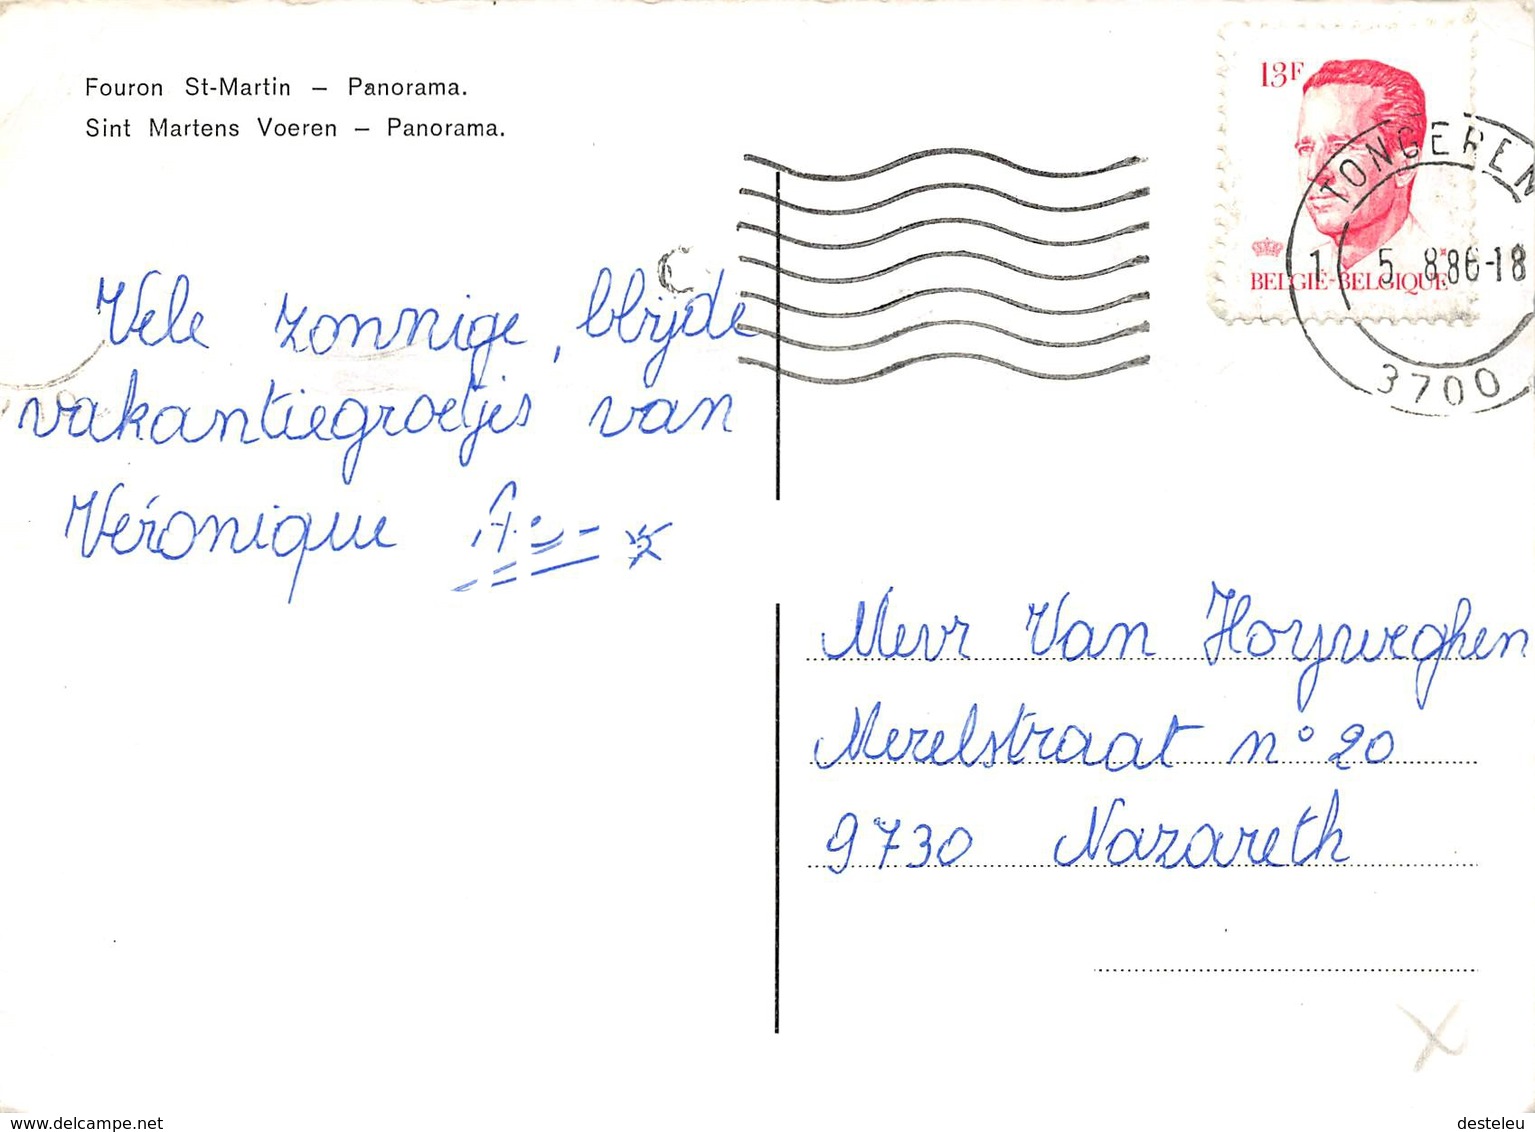 Fouron St-Martin – Panorama.
Sint Martens Voeren – Panorama.
13F
BELGIË-BELGIQUE
TONGEREN
1 5 8.86-18
3700
C
Vele zonnige, blijde
vakantiegroetjes van
Véronique
Mevr Van Hoyweghen
Merelstraat n° 20
9730 Nazareth
www.delcampe.net
desteleu